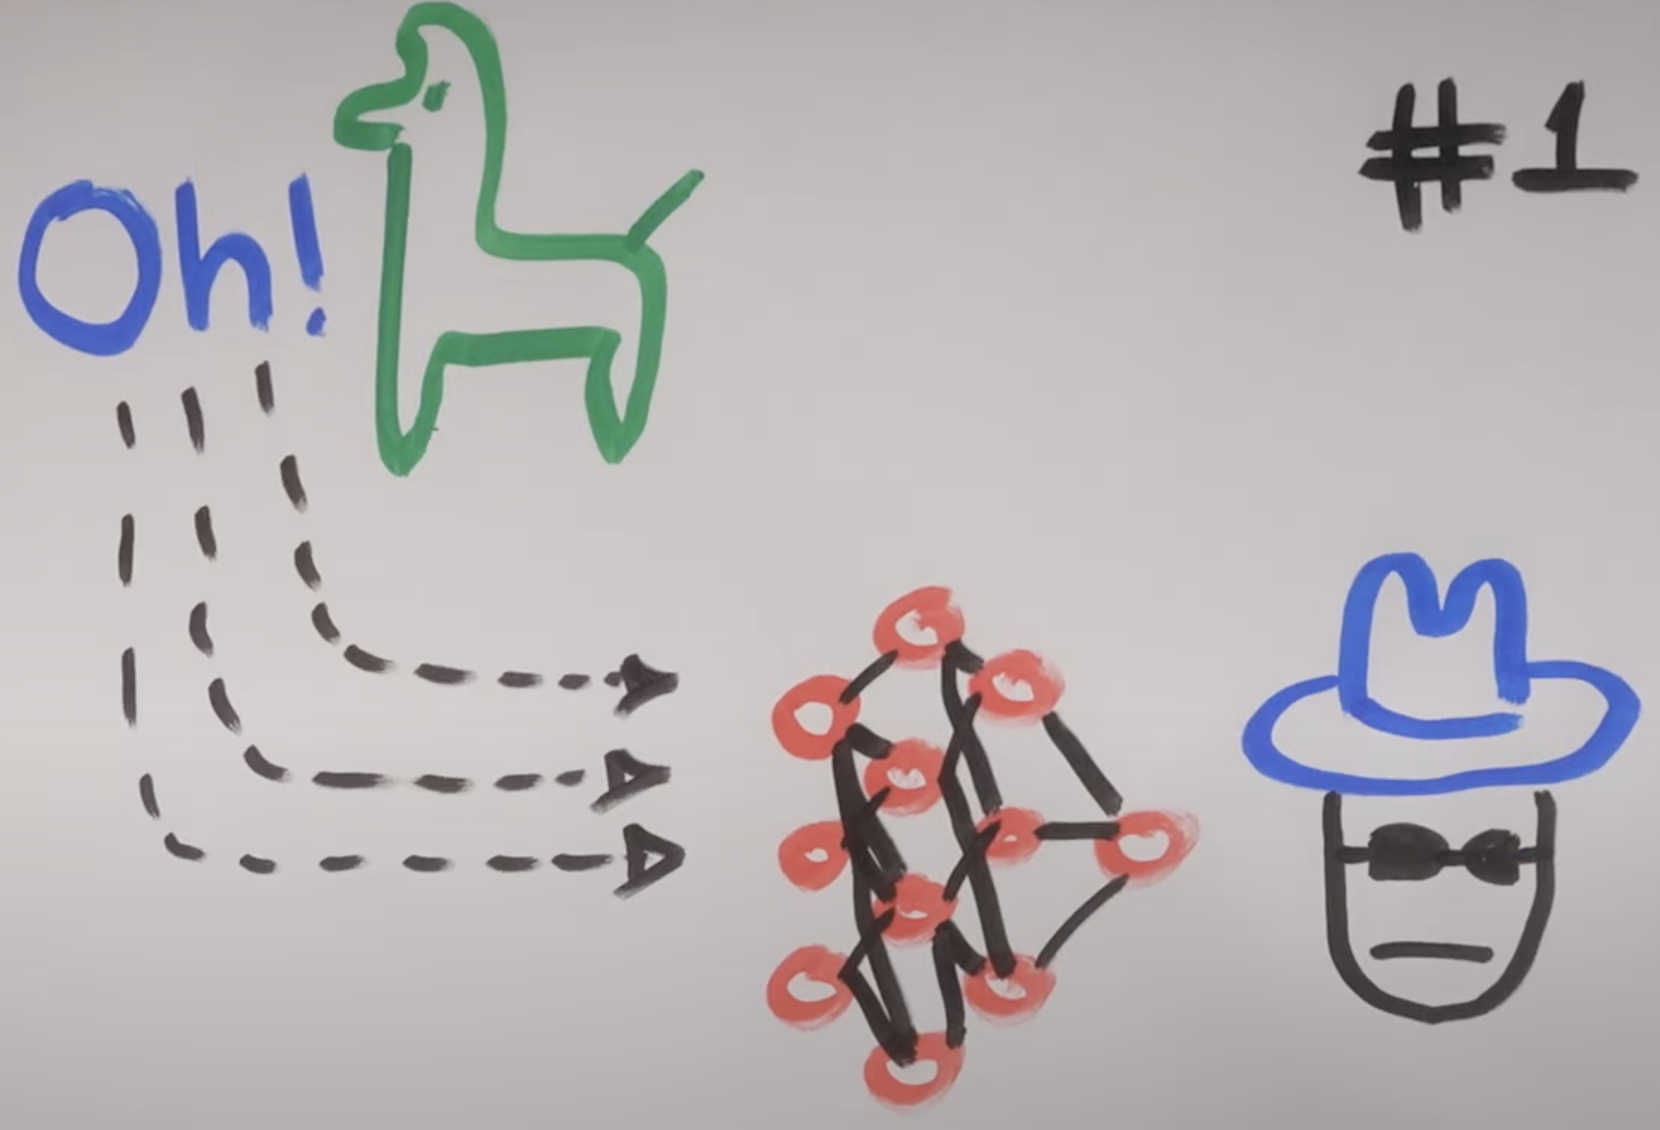 Oh!
#1